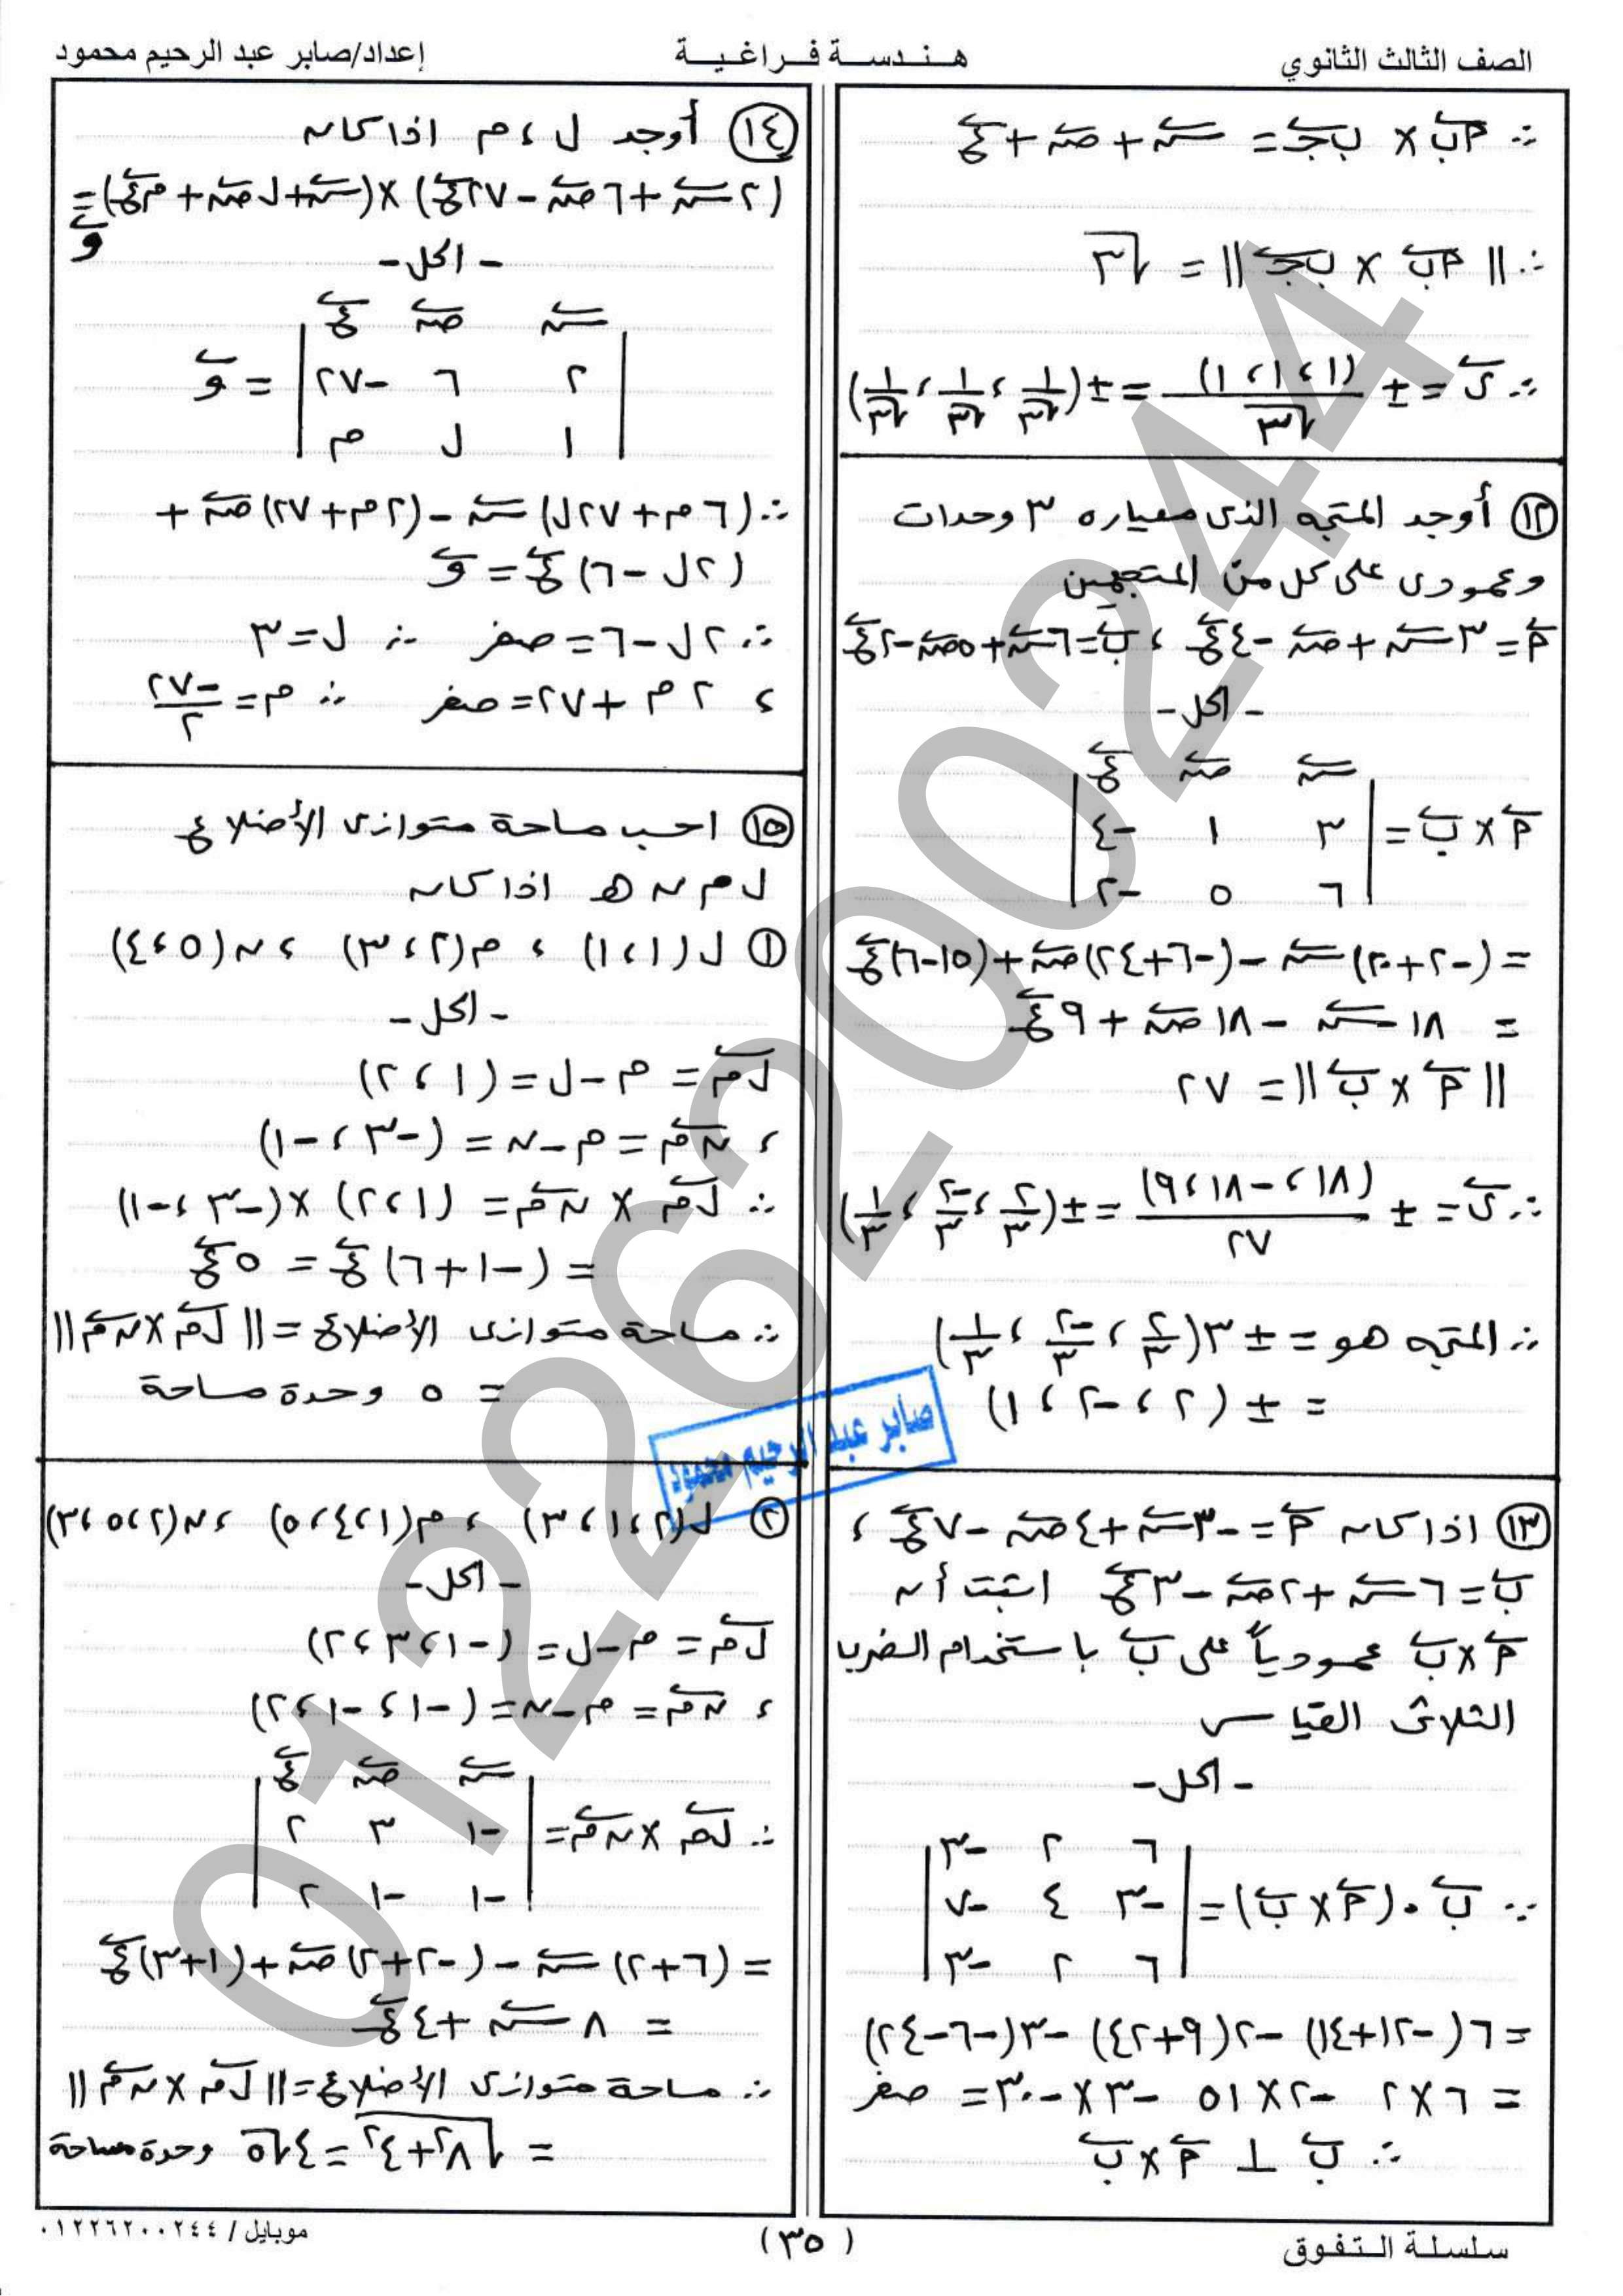 الصف الثالث الثانوي
هندسة فراغية
إعداد/صابر عبد الرحيم محمود
∴ أب × ب ج = س + ص + ع
∴ || أب × ب ج || = √٣
∴ ى = ± (١ ، ١ ، ١) / √٣ = ± (١/√٣ ، ١/√٣ ، ١/√٣)
١٢ أوجد المتجه الذى معياره ٣ وحدات
وعمودى على كل من المتجهين
أ = ٣س + ص - ٤ع ، ب = ٦س + ٥ص - ٢ع
- الحل -
س ص ع
أ × ب = | ٣ ١ -٤ |
| ٦ ٥ -٢ |
= (-٢+٢٠)س - (-٦+٢٤)ص + (١٥-٦)ع
= ١٨س - ١٨ص + ٩ع
|| أ × ب || = ٢٧
∴ ى = ± (١٨ ، -١٨ ، ٩) / ٢٧ = ± (٢/٣ ، -٢/٣ ، ١/٣)
∴ المتجه هو = ± ٣(٢/٣ ، -٢/٣ ، ١/٣)
= ± (٢ ، -٢ ، ١)
١٣ اذا كان أ = -٣س + ٤ص - ٧ع ،
ب = ٦س + ٢ص - ٣ع اثبت أن
أ × ب عمودياً على ب باستخدام الضرب
الثلاثى القياسى
- الحل -
| ٦ ٢ -٣ |
∵ ب . (أ × ب) = | -٣ ٤ -٧ |
| ٦ ٢ -٣ |
= ٦(-١٢+١٤) -٢(٩+٤٢) -٣(-٦-٢٤)
= ٦×٢ -٢×٥١ -٣×-٣٠ = صفر
∴ ب ⊥ أ × ب
١٤ أوجد ل ، م اذا كان
(٢س + ٦ص - ٢٧ع) × (س + ل ص + م ع) =
و
- الحل -
س ص ع
| ٢ ٦ -٢٧ | = و
| ١ ل م |
∴ (٦م + ٢٧ل)س - (٢م + ٢٧)ص +
(٢ل - ٦)ع = و
∴ ٢ل - ٦ = صفر ∴ ل = ٣
، ٢م + ٢٧ = صفر ∴ م = -٢٧/٢
١٥ احسب مساحة متوازى الأضلاع
ل م ن هـ اذا كان
١ ل(١ ، ١) ، م(٢ ، ٣) ، ن(٥ ، ٤)
- الحل -
ل م = م - ل = (١ ، ٢)
، ن م = م - ن = (-٣ ، -١)
∴ ل م × ن م = (١ ، ٢) × (-٣ ، -١)
= (-١+٦)ع = ٥ع
∴ مساحة متوازى الأضلاع = || ل م × ن م ||
= ٥ وحدة مساحة
صابر عبد الرحيم محمود
٢ ل(٢ ، ١ ، ٣) ، م(١ ، ٤ ، ٥) ، ن(٢ ، ٥ ، ٣)
- الحل -
ل م = م - ل = (-١ ، ٣ ، ٢)
، ن م = م - ن = (-١ ، -١ ، ٢)
س ص ع
∴ ل م × ن م = | -١ ٣ ٢ |
| -١ -١ ٢ |
= (٦+٢)س - (-٢+٢)ص + (١+٣)ع
= ٨س + ٤ع
∴ مساحة متوازى الأضلاع = || ل م × ن م ||
= √(٨² + ٤²) = ٤√٥ وحدة مساحة
سلسلة التفوق
(٣٥)
موبايل / ٠١٢٢٦٢٠٠٢٤٤
01226200244